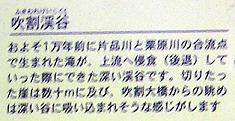 ふきわれけいこく
吹割渓谷
およそ1万年前に片品川と栗原川の合流点
で生まれた滝が、上流へ侵食（後退）して
いった際にできた深い渓谷です。切りたっ
た崖は数十mに及び、吹割大橋からの眺め
は深い谷に吸い込まれそうな感じがします